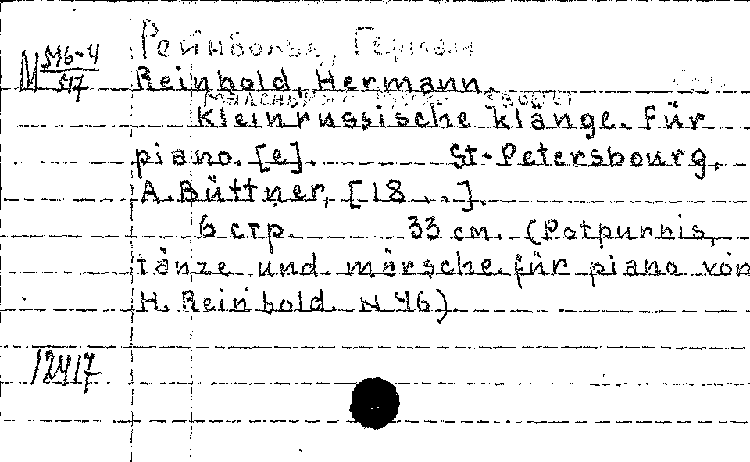 Рейнбольд, Герман
М 546-4
547
Reinhold, Hermann.
Kleinrussische klänge. Für
piano. [e]. St-Petersbourg,
A. Büttner, [18...].
6 стр. 33 см. (Potpurris,
tänze und märsche für piano von
H. Reinbold. N 46).
12417